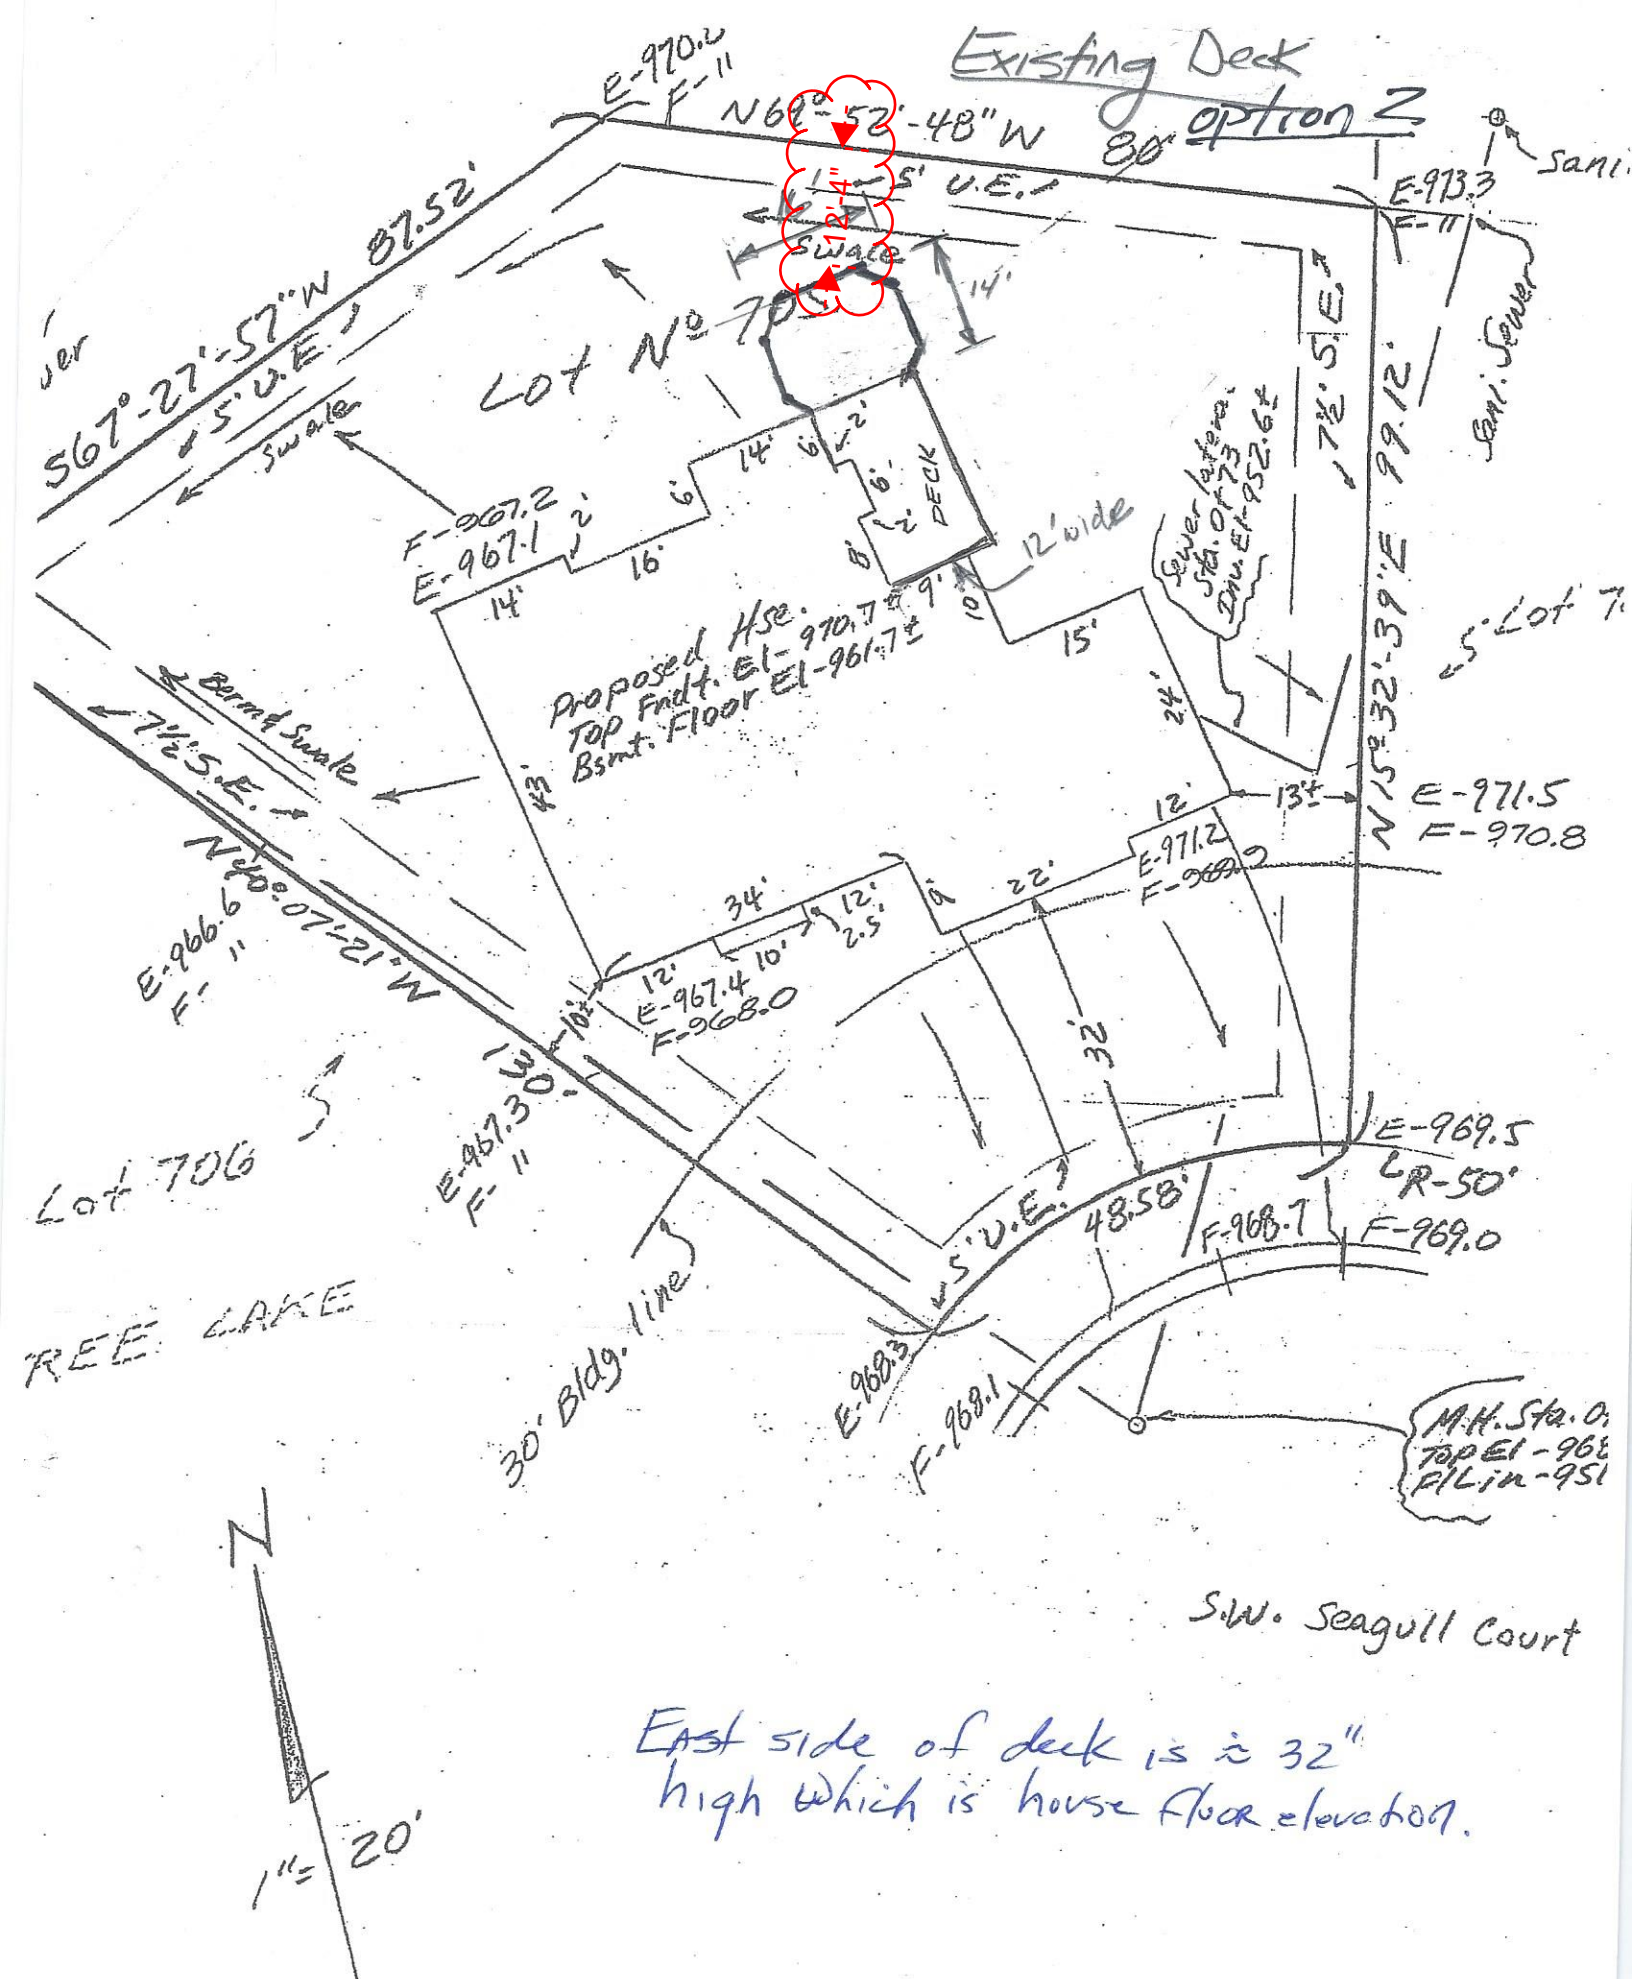 Existing Deck
option 2
E-970.2
F-11
N69°-52'-48" W
80'
Sani.
E-973.3
F-11
5' U.E.
12'-4"
Swale
14'
87.52'
S67°-27'-57"W
5' U.E.
Swale
Lot Nº 705
7½' S.E.
Sani. Sewer
99.12'
N15°-32'-39"E
Sewer lateral
Sta. 0+73
Inv. El-952.6±
DECK
12' wide
14'
6'
2'
6'
2'
8'
9'
10'
15'
24'
6'
16'
2'
14'
F-967.2
E-967.1
43'
Proposed Hse.
Top Fndt. El-970.7±
Bsmt. Floor El-961.7±
Lot 7
Berm & Swale
7½' S.E.
N40°-07'-21"W
E-966.6
F- 11
12'
13'±
E-971.5
F-970.8
E-971.2
F-969.9
22'
9'
34'
12'
2.5'
10'
12'
E-967.4
F-968.0
10'±
32'
130'
E-967.3
F- 11
Lot 706
E-969.5
R-50'
5' U.E.
48.58'
F-968.7
F-969.0
REE LAKE
30' Bldg. line
E-968.3
F-968.1
M.H. Sta. 0
Top El-968
F/L in-951
N
S.W. Seagull Court
East side of deck is ≈ 32"
high which is house floor elevation.
1"= 20'